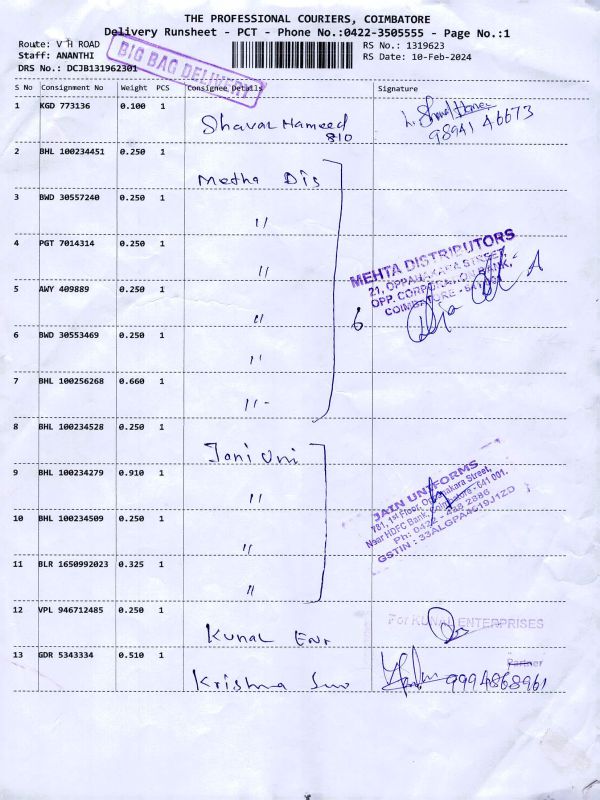 THE PROFESSIONAL COURIERS, COIMBATORE
Delivery Runsheet - PCT - Phone No.:0422-3505555 - Page No.:1
Route: V H ROAD
RS No.: 1319623
Staff: ANANTHI
RS Date: 10-Feb-2024
DRS No.: DCJB131962301
BIG BAG DELIVERY
S No Consignment No Weight PCS Consignee Details Signature
1 KGD 773136 0.100 1
Shavar Hameed
810
98941 46673
2 BHL 100234451 0.250 1
Metha Dis
3 BWD 30557240 0.250 1
"
4 PGT 7014314 0.250 1
"
MEHTA DISTRIBUTORS
21, OPPANAKARA STREET,
OPP. CORPORATION BANK,
COIMBATORE -
5 AWY 409889 0.250 1
"
6
6 BWD 30553469 0.250 1
"
7 BHL 100256268 0.660 1
" -
8 BHL 100234528 0.250 1
Jani Uni
9 BHL 100234279 0.910 1
"
JAIN UNIFORMS
781, 1st Floor, Oppanakara Street,
Near HDFC Bank, Coimbatore - 641 001.
Ph: 0422 - 438 2886
GSTIN : 33ALGPA4619J1ZD
10 BHL 100234509 0.250 1
"
11 BLR 1650992023 0.325 1
"
12 VPL 946712485 0.250 1
Kunal Enr
For KUNAL ENTERPRISES
Partner
13 GDR 5343334 0.510 1
Krishna
9994868961